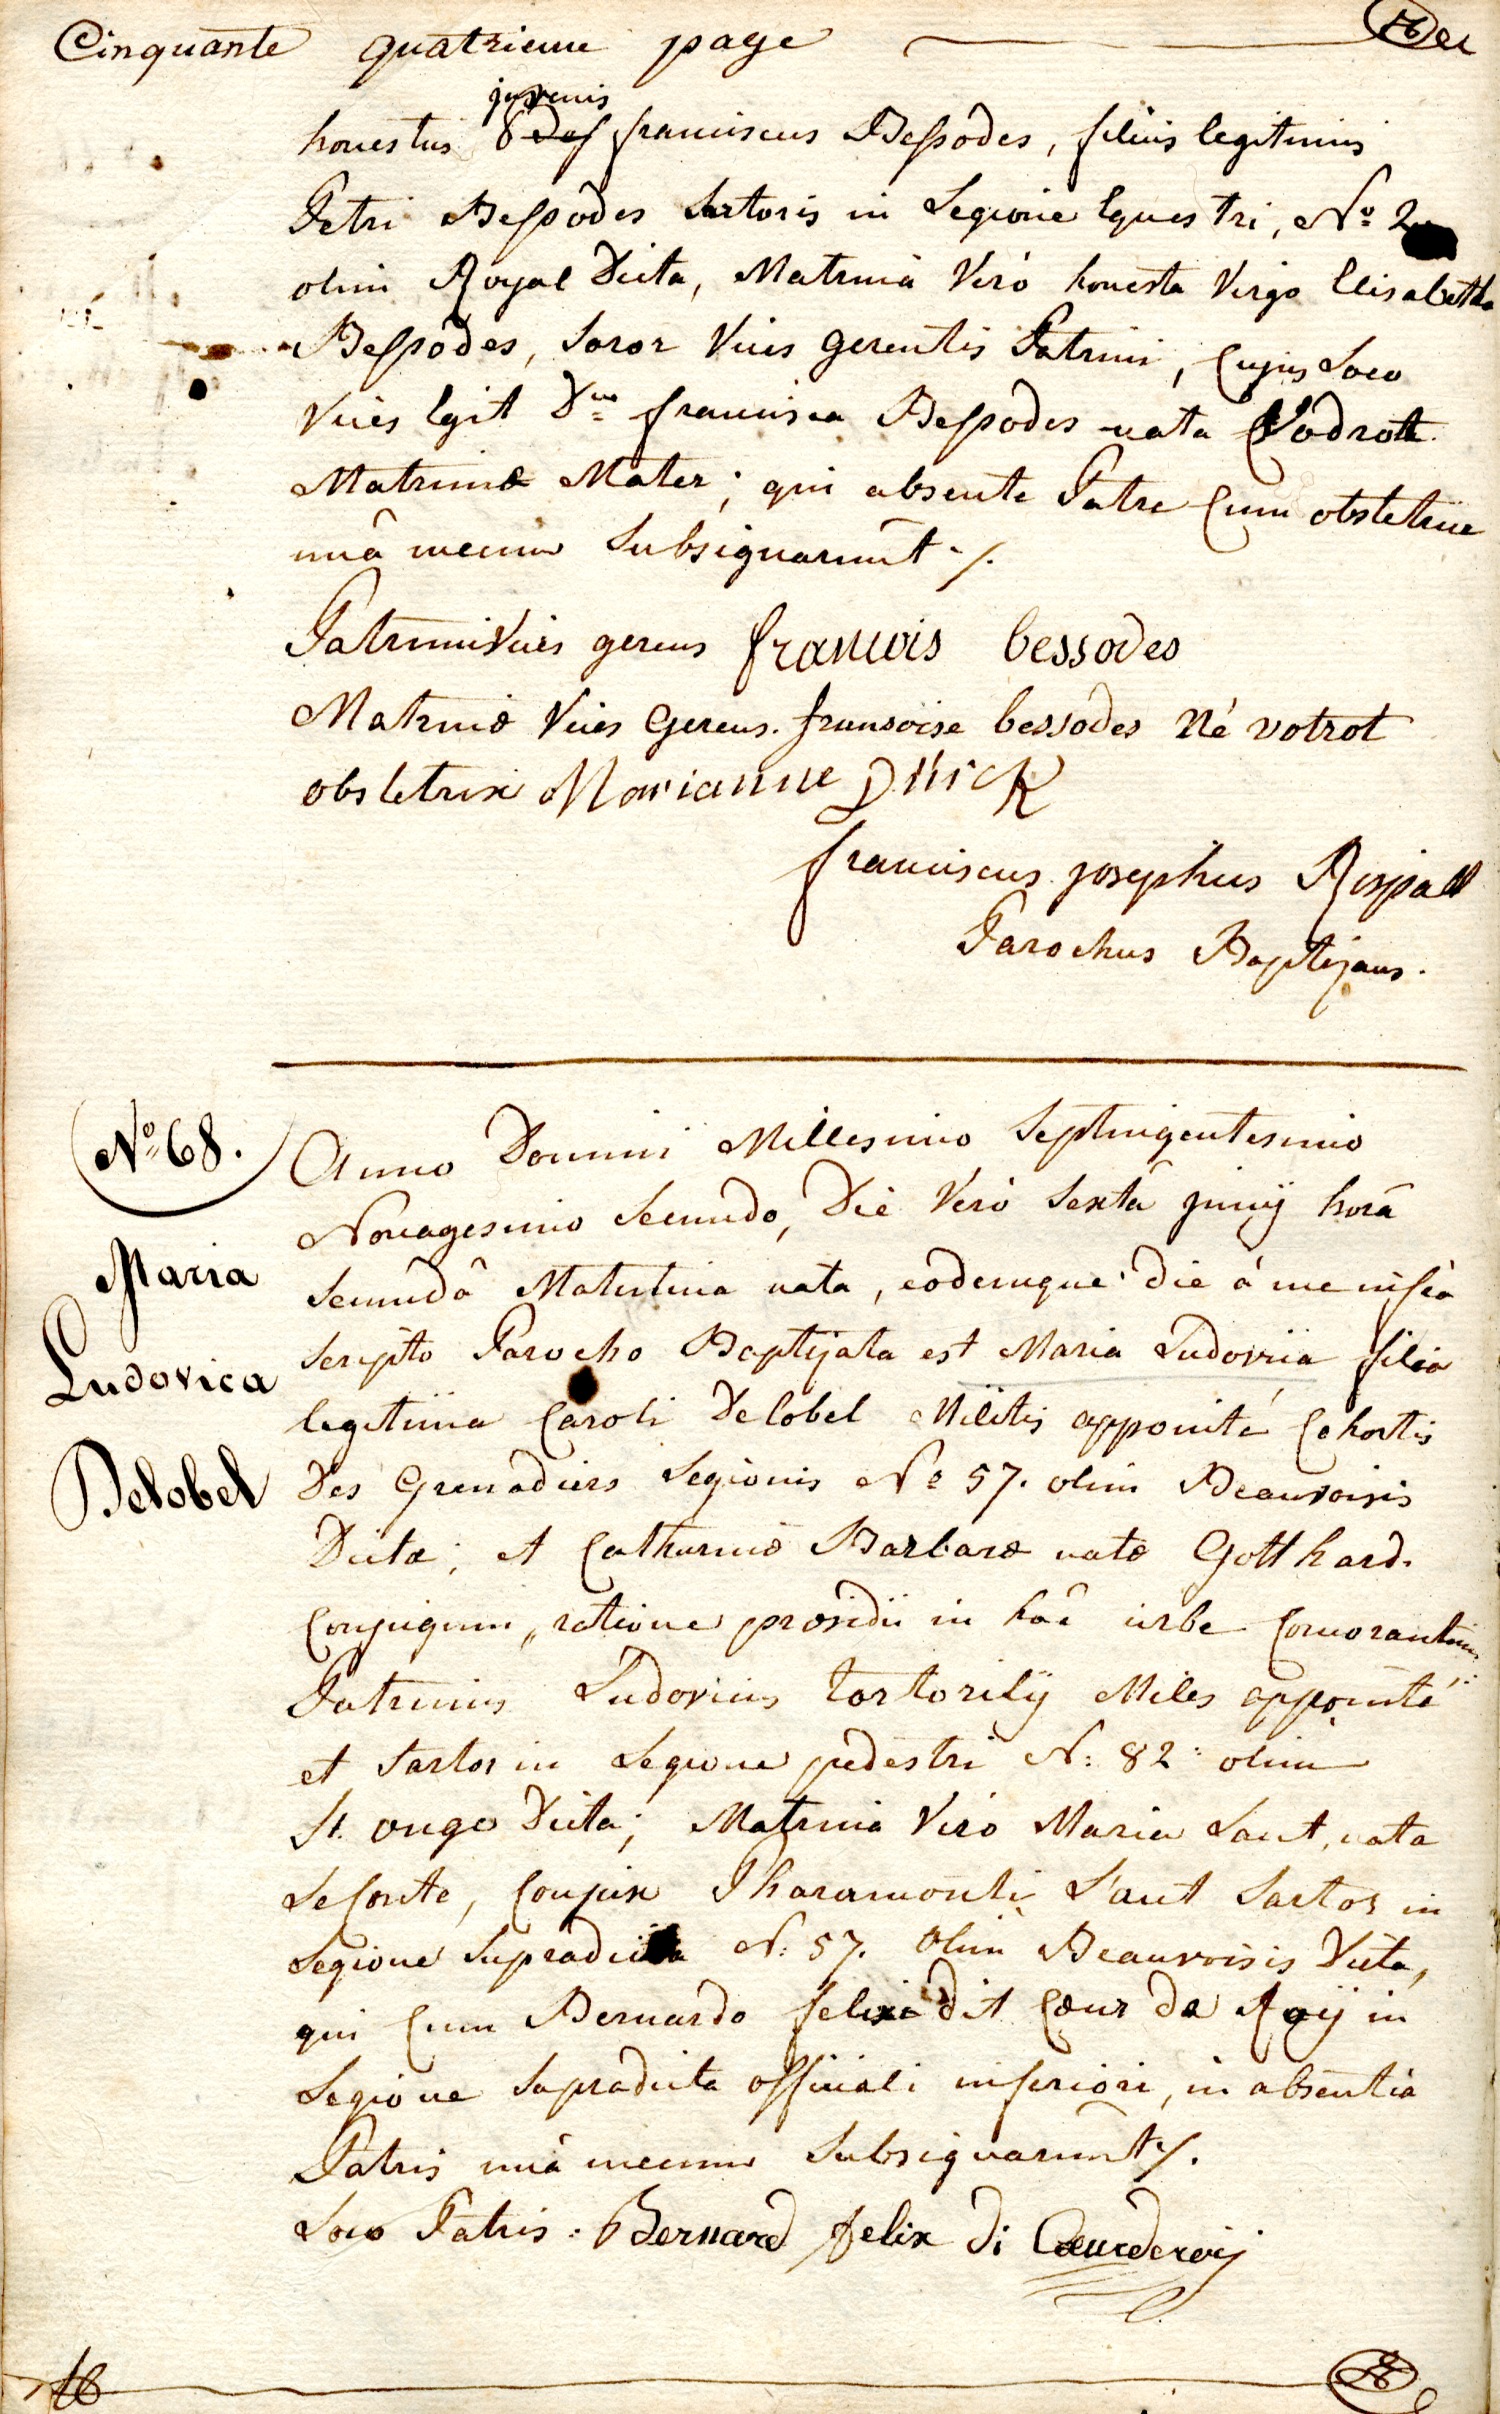 Cinquante quatrieme page
juvenis
honestus franciscus Bessodes, filius legitimus
Petri Bessodes Sartoris in Legione Equestri, No. 2
olim Royal Dicta, Matrina Verò honesta Virgo Elisabetha
Bessodes, Soror Vices gerentis Patrini, Cujus Loco
Vices Egit Dna francisca Bessodes nata Vodrott
Matrinæ Mater; qui absente Patre Cum obstetrice
unâ mecum Subsignarunt ./.
Patrini Vices gerens francois bessodes
Matrinæ Vices Gerens. fransoise bessodes Né votrot
obstetrix Marianne
franciscus josephus Rispall
Parochus Baptizans.
No. 68.
Maria
Ludovica
Delobel
Anno Domini Millesimo Septingentesimo
Nonagesimo Secundo, Die Verò Sextâ junij horâ
Secundâ Matutina nata, eodemque die à me infra
Scripto Parocho Baptizata est Maria Ludovica filia
legitima Caroli Delobel Militis appointé Cohortis
Des Grenadiers Legionis No. 57. olim Beauvoisis
Dictæ; et Catharinæ Barbaræ natæ Gotthard.
Conjugum, ratione præsidii in hac urbe Comorantium
Patrinus Ludovicus Tortorilij Miles appointé
et Sartor in Legione pedestri N: 82: olim
St. onge Dicta; Matrina Verò Maria Laut, nata
LeConte, Conjux Pharamondi Laut Sartor in
Legione Supradicta N: 57. olim Beauvoisis Dicta,
qui Cum Bernardo felix dit Cœur de Roij in
Legione Supradicta officiali inferiori, in absentia
Patris unà mecum Subsignarunt ./.
Loco Patris : Bernard felix di Cœurderoij